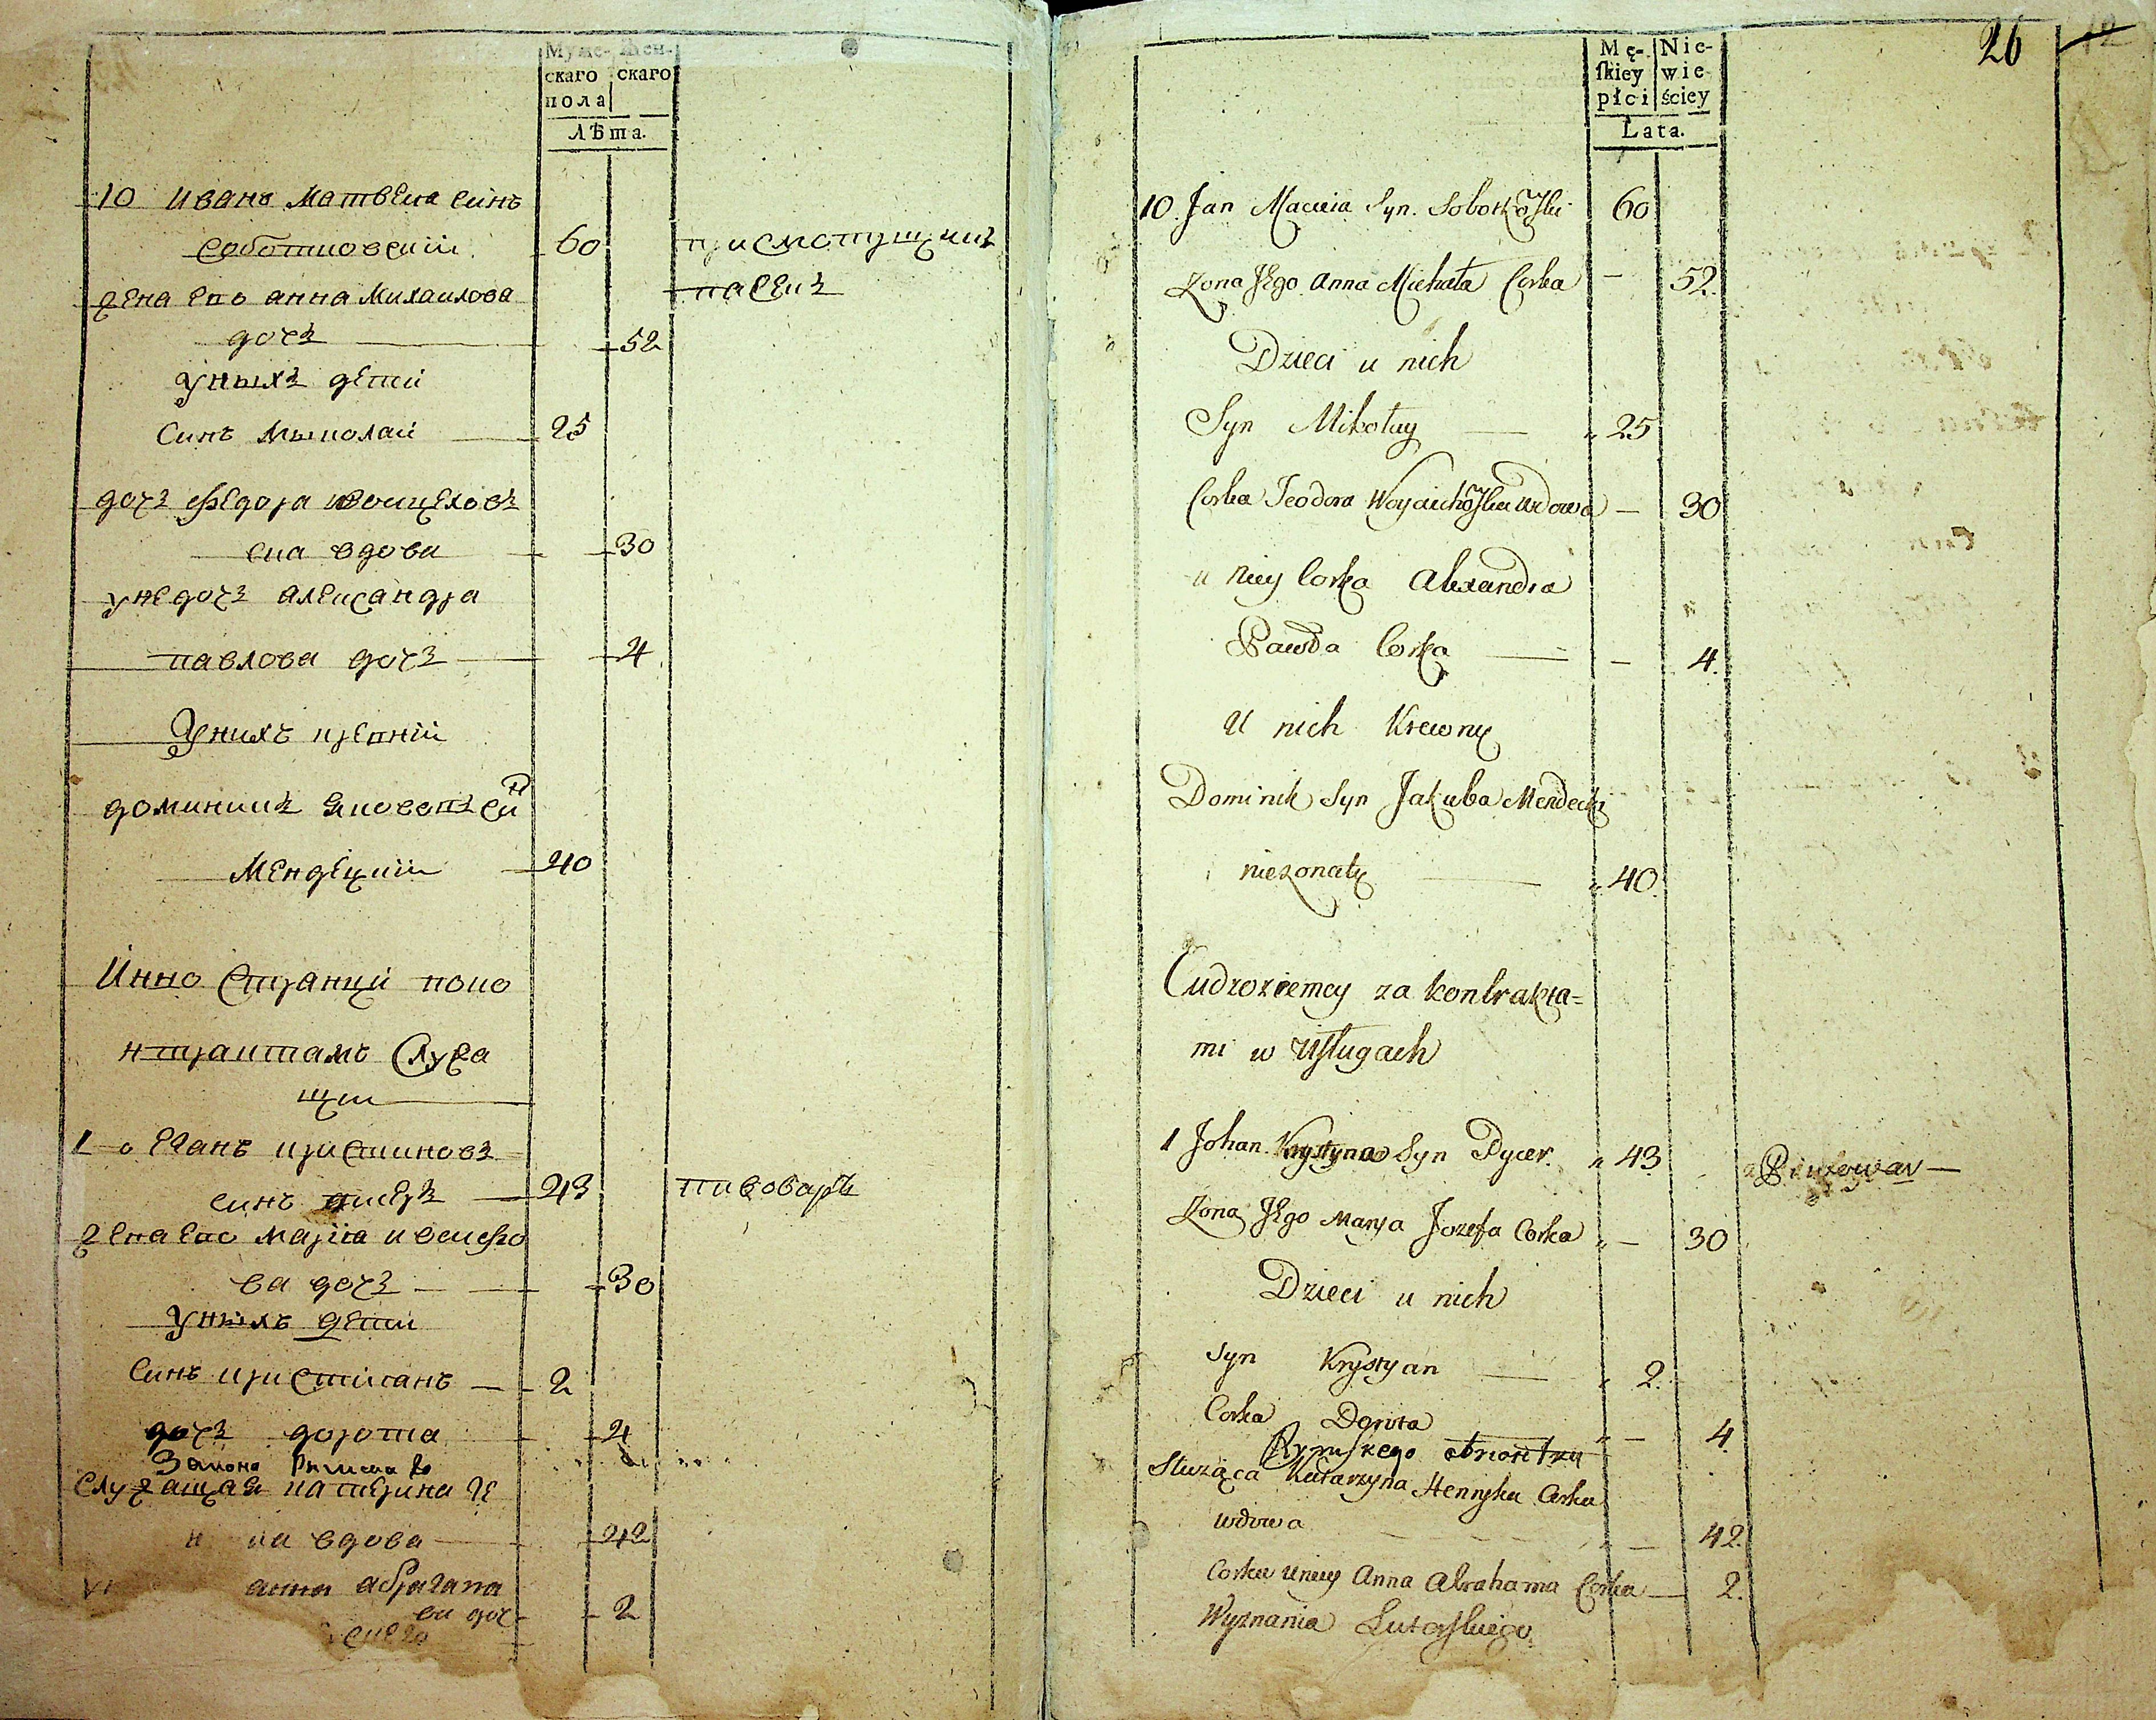 Муже- Жен-
скаго скаго
пола
Лѣта.
10 Иванъ Матвеиа синъ
Соботковский 60 присмотущикъ
жена его анна Михаилова пасекъ
дочъ 52
Уныхъ дети
Синъ Мыколай 25
дочъ Федора Воицехов
ска вдова 30
уне дочъ александра
павлова дочъ 4
Унихъ кревній
доминикъ Яковов
Мендецкий 40
Инно Странци поко
нтрактамъ Служа
щии
1 Еганъ кристиновъ
синъ 43 пивоваръ
жена его Маріа иосифо
ва дочъ 30
Уныхъ дети
Синъ кристианъ 2
дочъ дорота 4
Закона
Служащая катерина
вдова 42
анна абрагама
ва доч 2
26
Mę- Nie-
ſkiey wie-
płci ściey
Lata.
10. Jan Macieia Syn. Sobotkoſki 60
Zona Jego Anna Michała Corka — 52.
Dzieci u nich
Syn Mikołay — 25
Corka Teodora Woyciechoſka wdowa — 30
u niey Corka Alexandra
Pawła Corka — 4.
U nich Krewny
Dominik Syn Jakuba Mendecki
niezonaty — 40.
Cudzoziemcy za kontrakta=
mi w Uſługach
1 Johan Krystyna Syn Dycer. 43 Piwowar —
Zona Jego Marya Jozefa Corka — 30
Dzieci u nich
Syn Krystyan — 2.
Corka Dorota — 4.
Rzymſkego
Służąca Katarzyna Henryka Corka
wdowa — 42.
Corka u niey Anna Abrahama Corka — 2.
Wyznania Luterſkiego